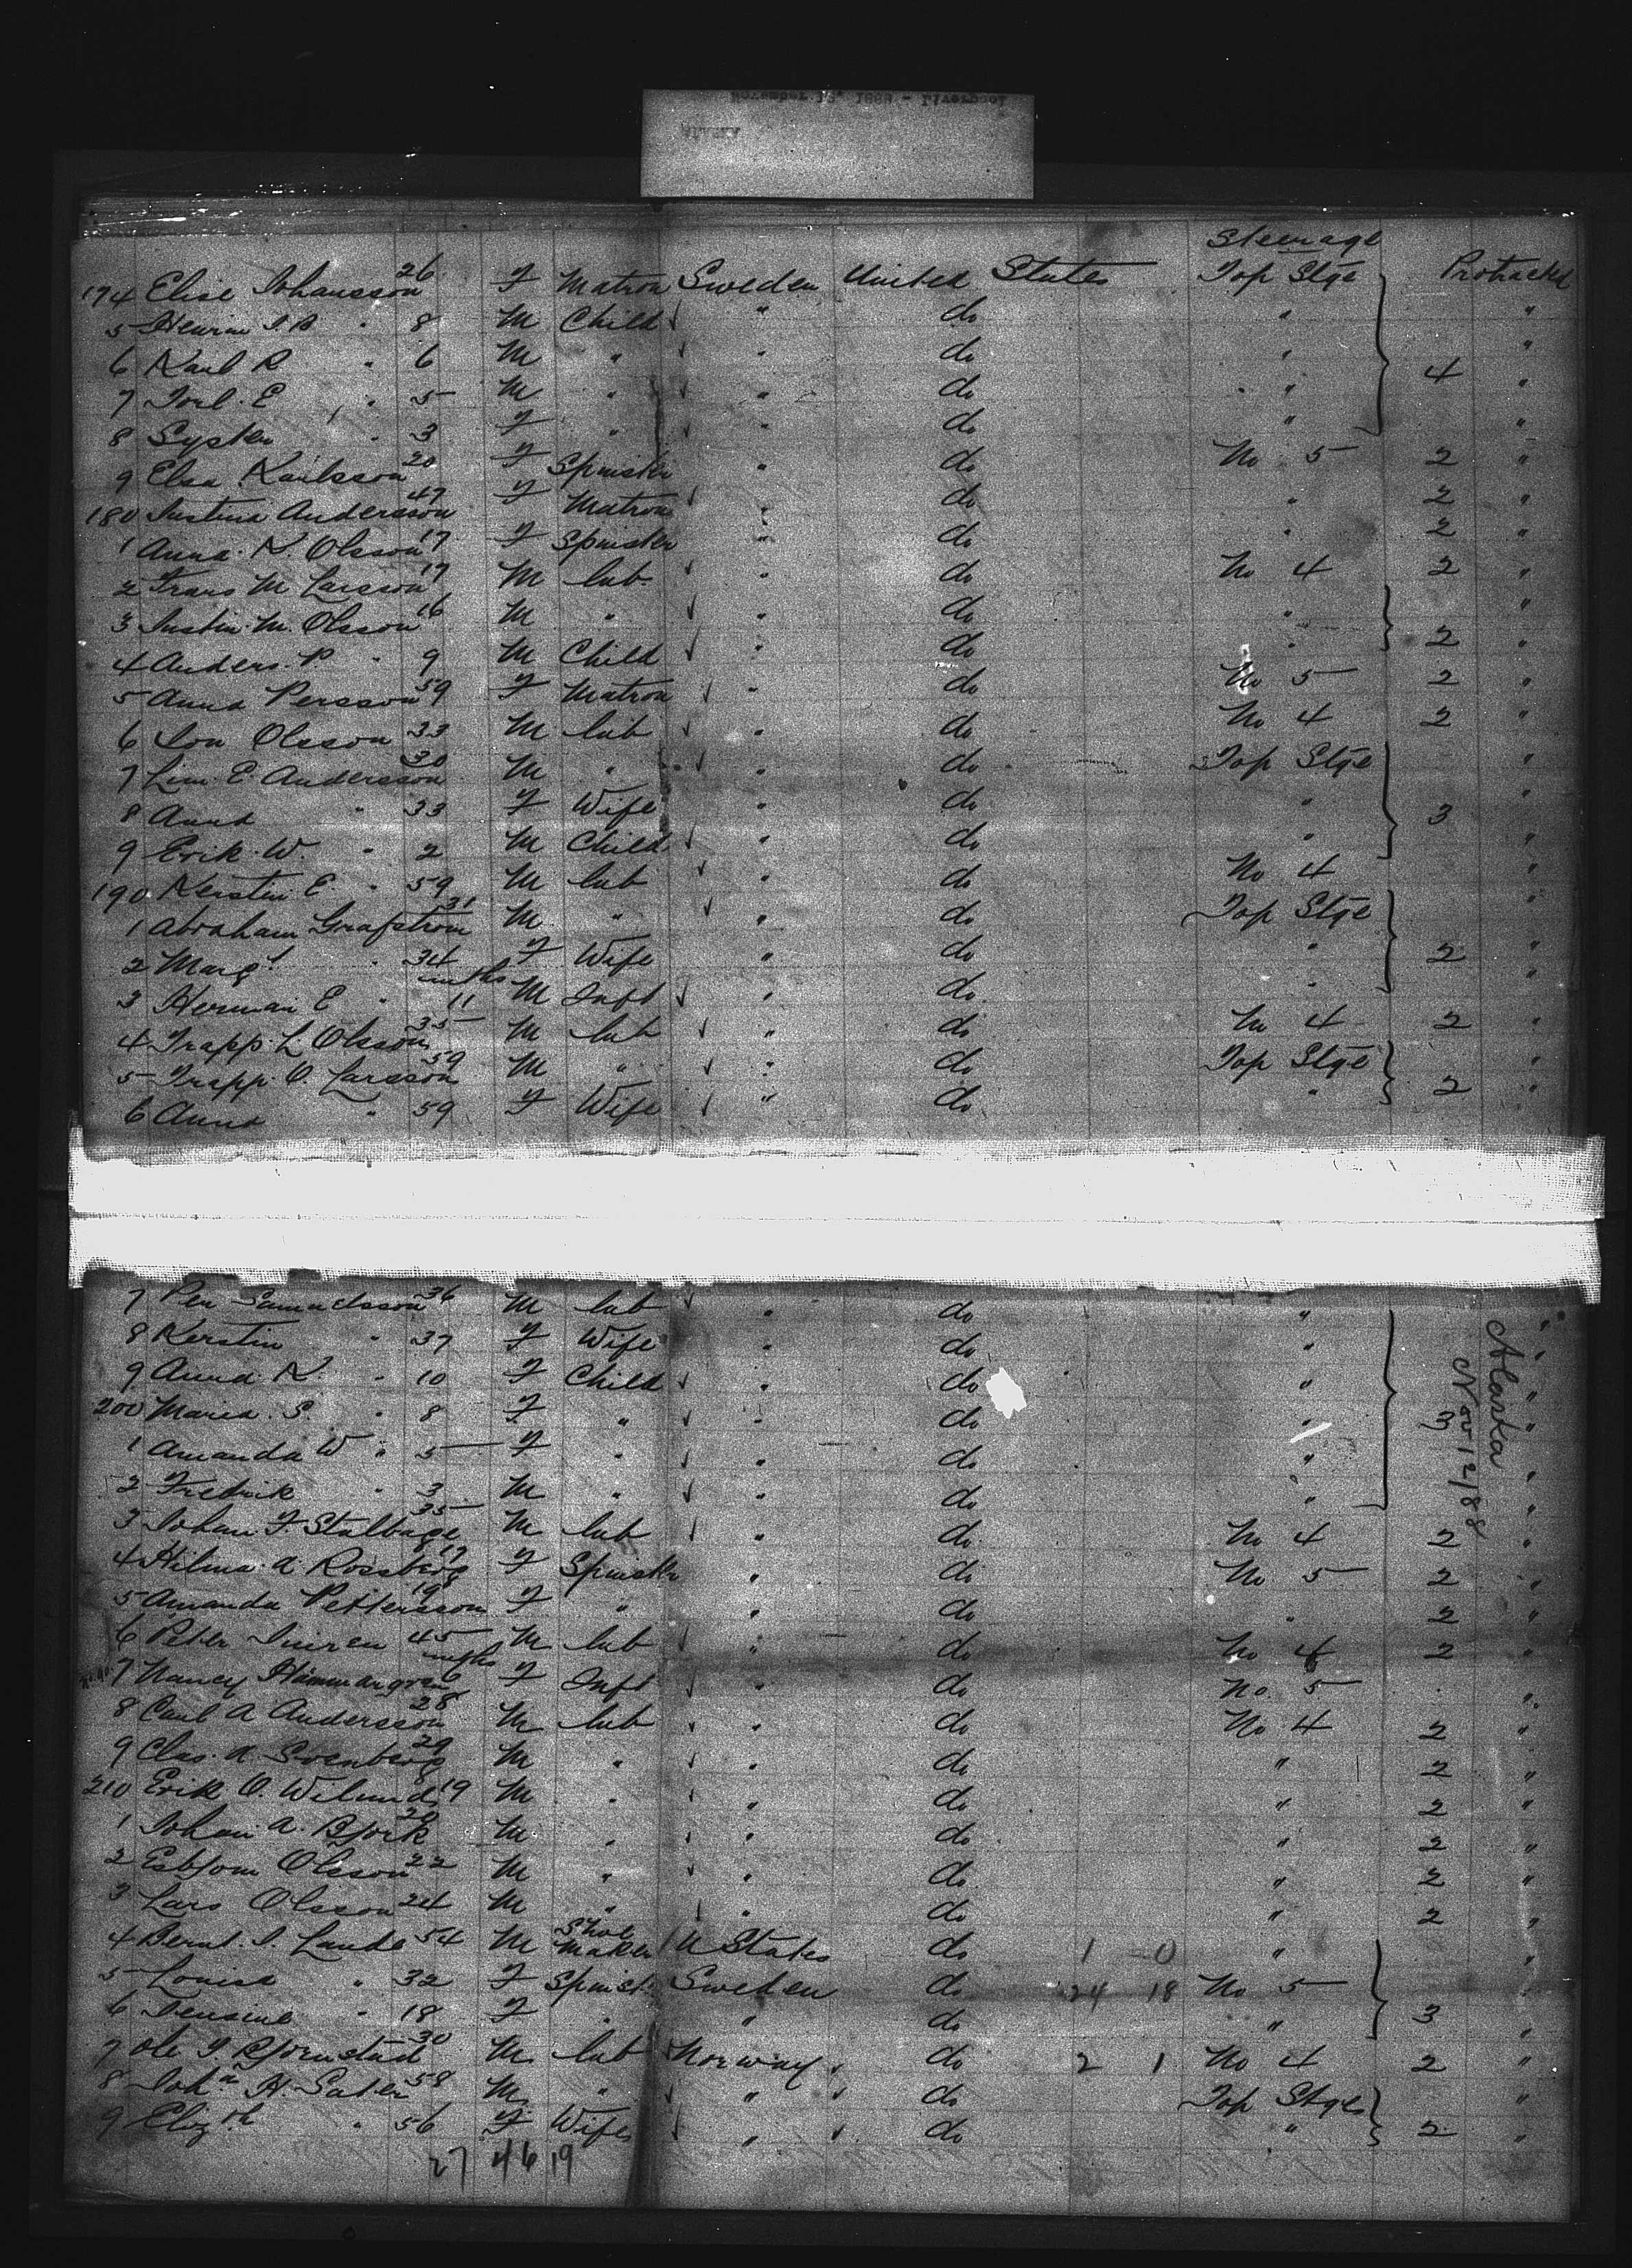 November 12, 1888 - Liverpool
Steerage
174 Elise Johansson 26 F Matron Sweden United States Top Stge Protracted
5 Henrin I. B " 8 M Child " do " "
6 Karl R " 6 M " " do " "
7 Joel. E " 5 M " " do " 4 "
8 " 3 F " " do " "
9 Elsa Karlsson 20 F Spinster " do No 5 2 "
180 Justina Andersson 47 F Matron " do " 2 "
1 Anna. K. Olsson 17 F Spinster " do " 2 "
2 Frans M Larsson 17 M lab. " do No 4 2 "
3 Justin. M. Olsson 16 M " " do " "
4 Anders. P " 9 M Child " do " 2 "
5 Anna Persson 59 F Matron " do No 5 2 "
6 Lon Olsson 33 M lab " do No 4 2 "
7 E Andersson 30 M " " do Top Stge "
8 Anna " 33 F Wife " do " 3 "
9 Erik. W. " 2 M Child " do " "
190 Kerstin E. " 59 M lab " do No 4
1 Abraham Grafstrom 31 M " " do Top Stge "
2 Margt " 34 F Wife " do " 2 "
3 Herman E " mths 11 M Inft " do " "
4 Trapp. L Olsson 35 M lab " do No 4 2 "
5 Trapp. O. Larsson 59 M " " do Top Stge "
6 Anna " 59 F Wife " do " 2 "
7 Per Samuelsson 36 M lab " do " "
8 Kerstin " 37 F Wife " do " "
9 Anna K. " 10 F Child " do " "
200 Maria. S. " 8 F " " do " 3 "
1 Amanda W " 5 F " " do " "
2 Fredrik " 3 M " " do " "
Alaska
Nov 12/88
3 Johan F. Stalbage 35 M lab " do No 4 2 "
4 Hilma. A Rossberg 17 F Spinstr " do No 5 2 "
5 Amanda Pettersson 19 F " " do " 2 "
6 Peter 45 M lab " do No 4 2 "
7 Nancy Hammargren mths 6 F Inft " do No. 5 "
8 Carl A Andersson 28 M lab " do No 4 2 "
9 Clas. A. Svenberg 29 M " " do " 2 "
210 Erik O. 19 M " " do " 2 "
1 Johan A. Bjork 20 M " " do " 2 "
2 Esbjorn Olsson 22 M " " do " 2 "
3 Lars Olsson 24 M " " do " 2 "
4 Bernt. I. Lande 54 M Shoe Maker U States do 1 0 " "
5 Louisa " 32 F Spinst. Sweden do 24 18 No 5 "
6 " 18 F " " do " 3 "
7 Ole I. Bjornstad 30 M. lab Norway do 2 1 No 4 2 "
8 Johan H. Sater 58 M " " do Top Stge "
9 Elizth " 56 F Wife " do " 2 "
27 46 19